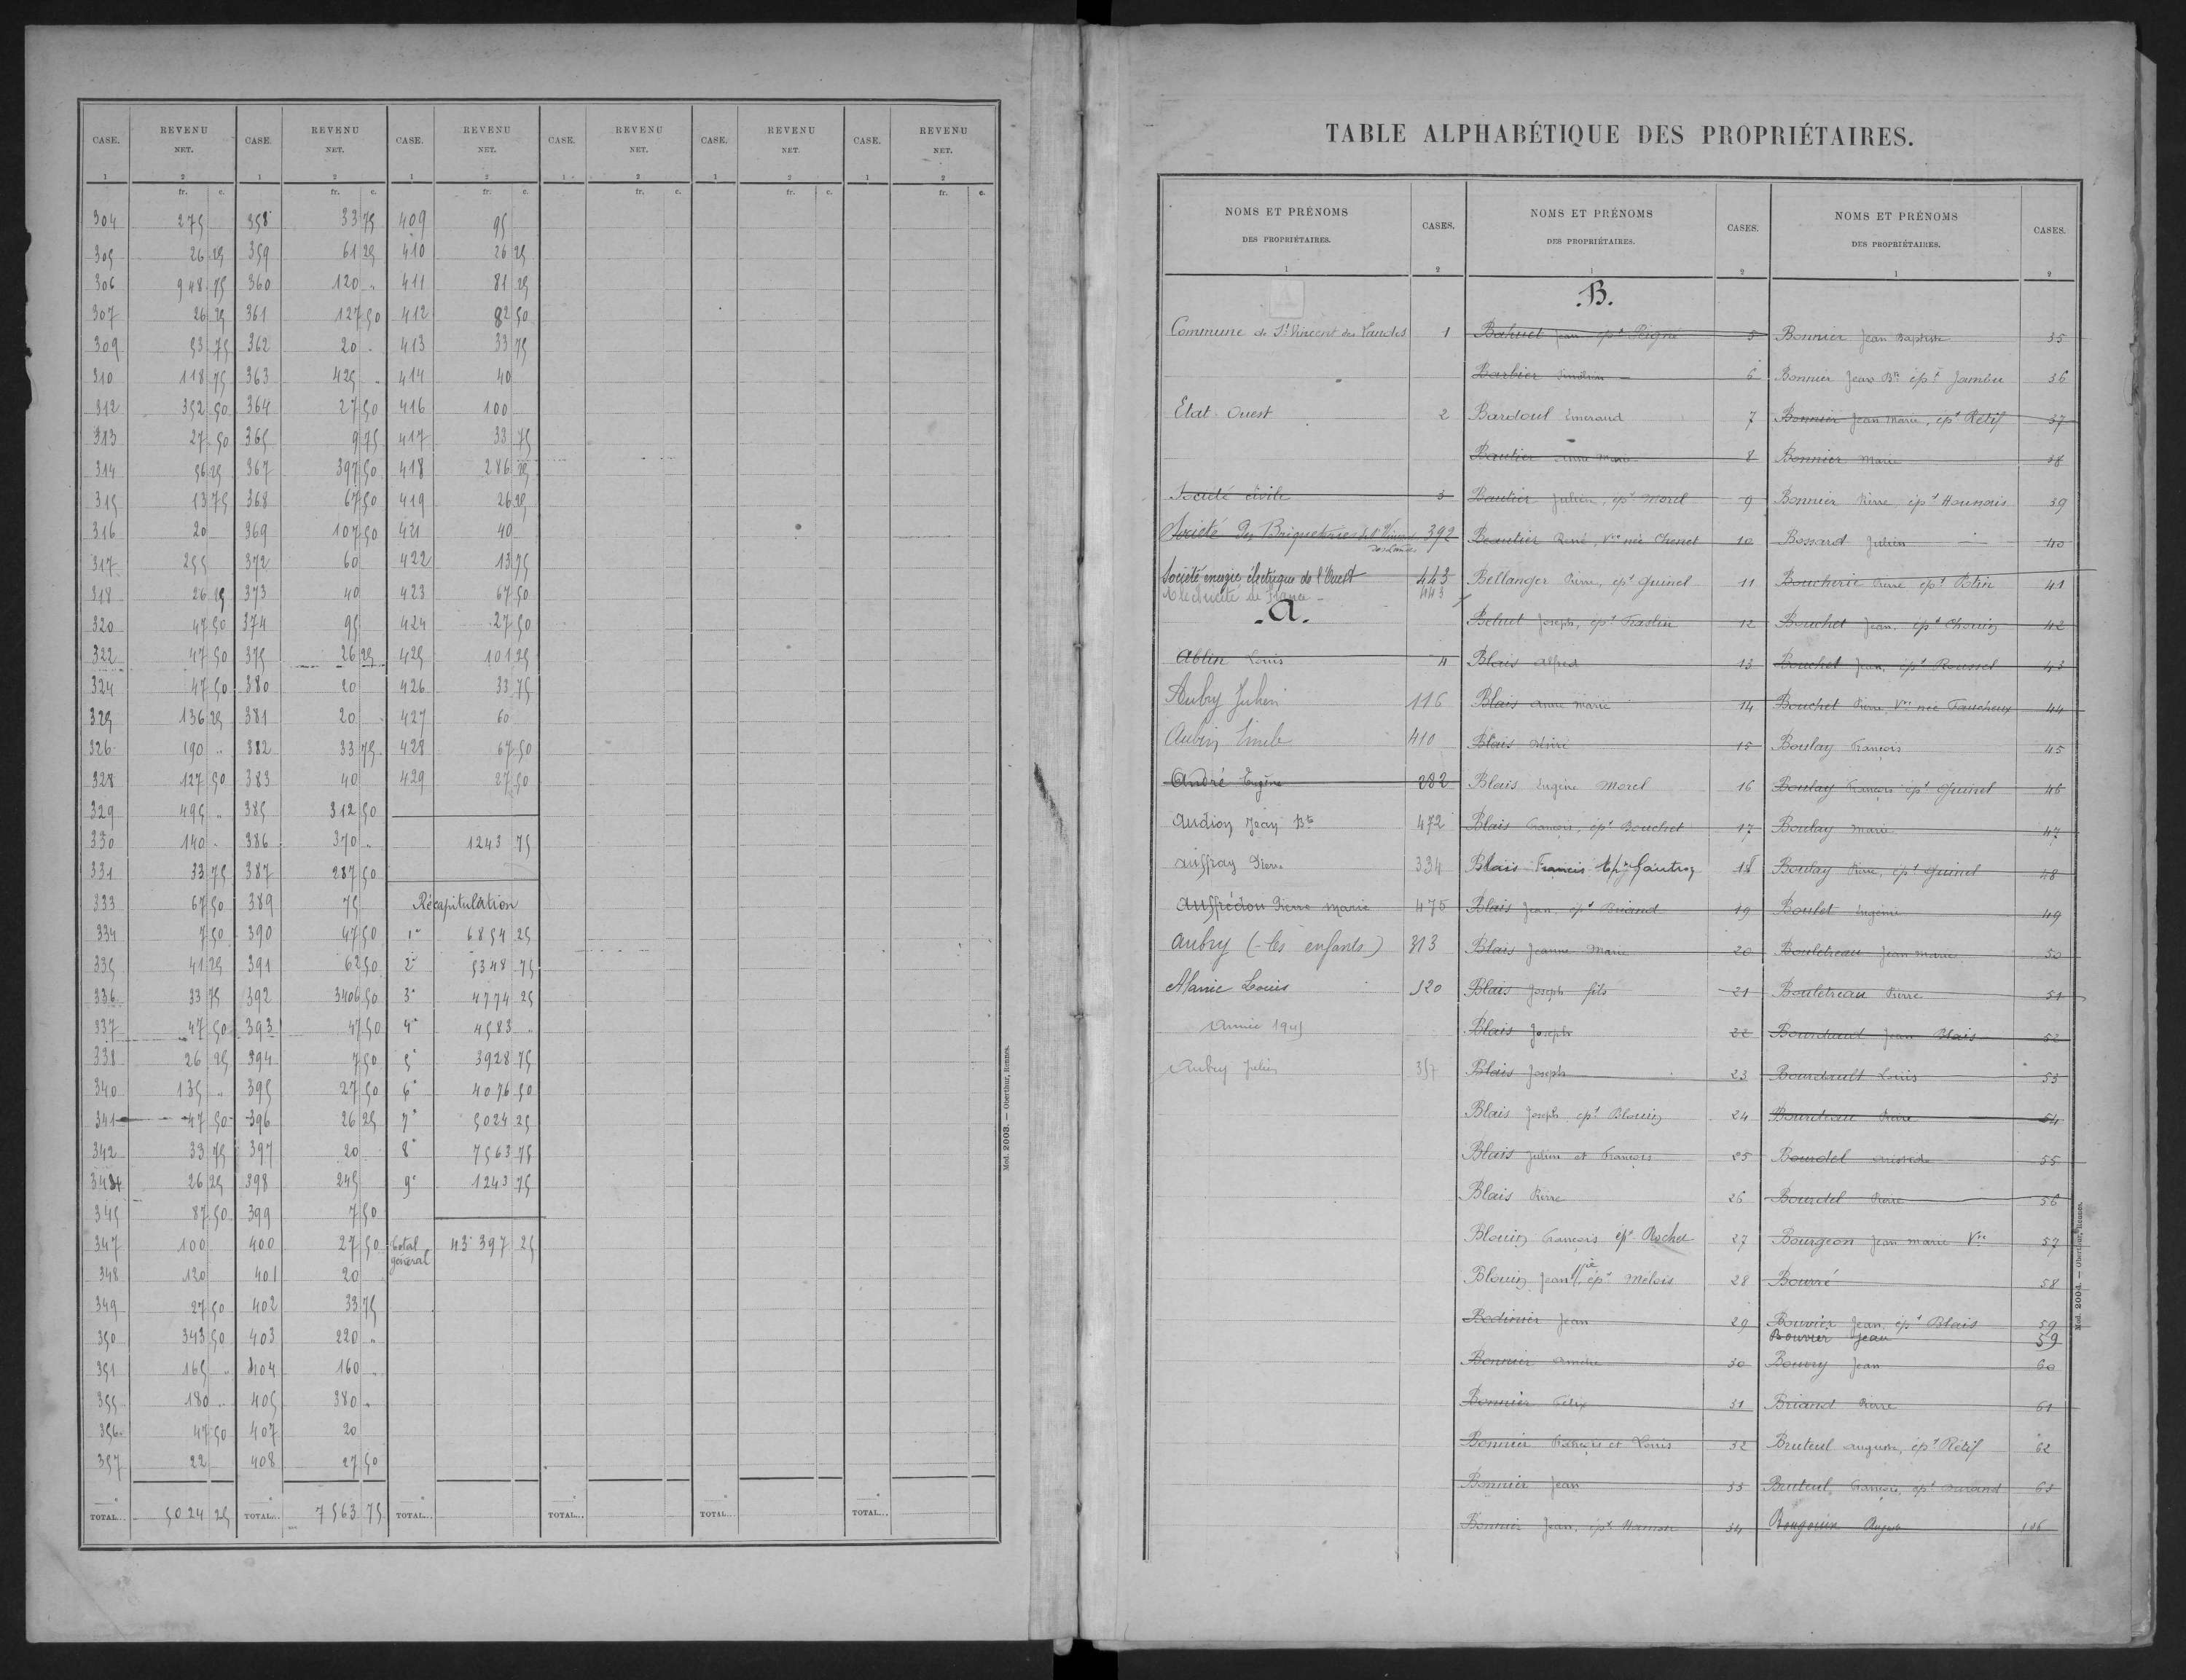 CASE. REVENU NET. CASE. REVENU NET. CASE. REVENU NET. CASE. REVENU NET. CASE. REVENU NET. CASE. REVENU NET.
1 2 1 2 1 2 1 2 1 2 1 2
fr. c. fr. c. fr. c. fr. c. fr. c. fr. c.
304 275 358 33 75 409 95
305 26 25 359 61 25 410 26 25
306 948 75 360 120 " 411 81 25
307 26 25 361 127 50 412 82 50
309 53 75 362 20 " 413 33 75
310 118 75 363 425 " 414 40
312 352 50 364 27 50 416 100
313 27 50 365 9 75 417 33 75
314 56 25 367 397 50 418 286 25
315 13 75 368 67 50 419 26 25
316 20 369 107 50 421 40
317 255 372 60 422 13 75
318 26 25 373 40 423 67 50
320 47 50 374 95 424 27 50
322 47 50 375 26 25 425 101 25
324 47 50 380 20 426 33 75
325 136 25 381 20 427 60
326 190 " 382 33 75 428 67 50
328 127 50 383 40 429 27 50
329 495 " 385 312 50
330 140 " 386 370 " 1243 75
331 33 75 387 287 50
333 67 50 389 75 Récapitulation
334 7 50 390 47 50 1° 6854 25
335 41 25 391 62 50 2° 5348 75
336 33 75 392 3406 50 3° 4774 25
337 47 50 393 47 50 4° 4583 "
338 26 25 394 7 50 5° 3928 75
340 135 " 395 27 50 6° 4076 50
341 47 50 396 26 25 7° 5024 25
342 33 75 397 20 8° 7563 75
344 26 25 398 245 9° 1243 75
345 87 50 399 7 50
347 100 400 27 50 total général 43 397 25
348 120 401 20
349 27 50 402 33 75
350 343 50 403 220 "
351 165 " 404 160 "
355 180 " 405 380 "
356 47 50 407 20
357 22 408 27 50
TOTAL... 5024 25 TOTAL... 7563 75 TOTAL... TOTAL... TOTAL... TOTAL...
Mod. 2003. — Oberthur, Rennes.
TABLE ALPHABÉTIQUE DES PROPRIÉTAIRES.
NOMS ET PRÉNOMS DES PROPRIÉTAIRES. CASES. NOMS ET PRÉNOMS DES PROPRIÉTAIRES. CASES. NOMS ET PRÉNOMS DES PROPRIÉTAIRES. CASES.
1 2 1 2 1 2
Commune de St Vincent des Landes 1
Etat Ouest 2
Société civile 3
Société des Briqueteries de St Vincent des Landes 392
Société énergie électrique de l'Ouest 443
Electricité de France 443
.A.
Ablin Louis 4
Aubry Julien 116
Aubin Emile 410
André Eugène 282
Audion Jean Bte 472
Auffray Pierre 334
Auffrédou Pierre Marie 475
Aubry (les enfants) 313
Alanic Louis 120
Année 1945
Aubry Julien 357
.B.
Bahuet Jean ép. Peigné 5
Barbier 6
Bardoul Emerand 7
Bautier Anne Marie 8
Bautier Julien, ép. Morel 9
Beautier René, Vve née Chenet 10
Bellanger Pierre, ép. Guinel 11
Beluet Joseph, ép. Fraslin 12
Blais Alfred 13
Blais Anne Marie 14
Blais Désiré 15
Blais Eugène Morel 16
Blais François, ép. Bouchet 17
Blais Francis Ep. Gautron 18
Blais Jean, ép. Briand 19
Blais Jeanne Marie 20
Blais Joseph fils 21
Blais Joseph 22
Blais Joseph 23
Blais Joseph ép. Blouin 24
Blais Julien et François 25
Blais Pierre 26
Blouin François ép. Rochet 27
Blouin Jean ép. Mélois 28
Bodinier Jean 29
Bonnier 30
Bonnier Félix 31
Bonnier François et Louis 32
Bonnier Jean 33
Bonnier Jean, ép. Hamon 34
Bonnier Jean Baptiste 35
Bonnier Jean Bte ép. Jambu 36
Bonnier Jean Marie, ép. Rétif 37
Bonnier Marie 38
Bonnier Pierre, ép. 39
Bossard Julien 40
Boucherie Pierre ép. Potin 41
Bouchet Jean, ép. Chouin 42
Bouchet Jean, ép. Roussel 43
Bouchet Pierre, Vve née Faucheux 44
Boulay François 45
Boulay François ép. Guinel 46
Boulay Marie 47
Boulay Pierre, ép. Guinel 48
Boulet Eugénie 49
Bouletreau Jean Marie 50
Bouletreau Pierre 51
Jean Blais 52
Bourdault Louis 53
Pierre 54
Bourdel Aristide 55
Bourdel Pierre 56
Bourgeon Jean Marie Vve 57
Bourré 58
Bouvier Jean, ép. Blais 59
Bouvier Jean 59
Bouvry Jean 60
Briand Pierre 61
Bruteul Auguste, ép. Rétif 62
Bruteul François, ép. Durand 63
Auguste 106
Mod. 2004. — Oberthur, Rennes.